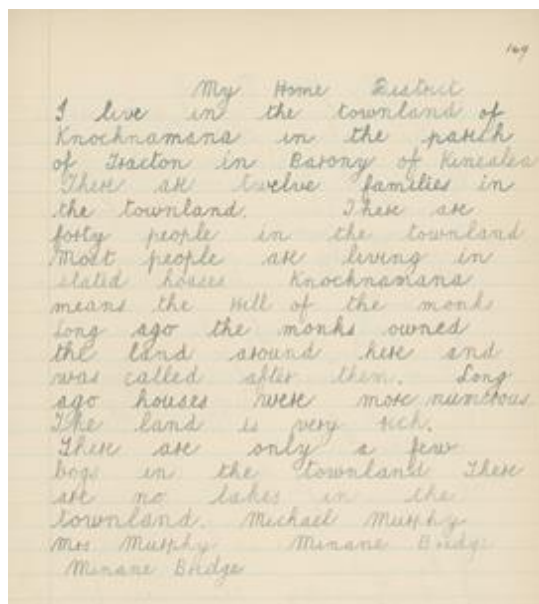 169
My Home District
I live in the townland of
Knocknamana in the parish
of Tracton in Barony of Kinealea
There are twelve families in
the townland. There are
forty people in the townland
Most people are living in
slated houses Knocknamana
means the Hill of the monks
Long ago the monks owned
the land around here and
was called after them. Long
ago houses were more numerous
The land is very rich.
There are only a few
bogs in the townland There
are no lakes in the
townland. Michael Murphy
Mrs Murphy Minane Bridge
Minane Bridge